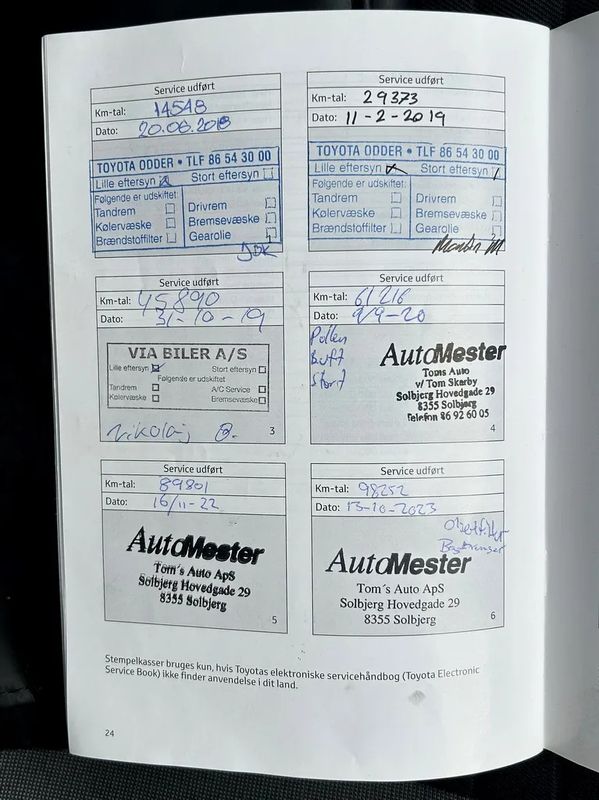 Service udført
Km-tal: 14548
Dato: 20.06.2018
TOYOTA ODDER • TLF 86 54 30 00
Lille eftersyn Stort eftersyn
Følgende er udskiftet:
Tandrem Drivrem
Kølervæske Bremsevæske
Brændstoffilter Gearolie
Service udført
Km-tal: 29373
Dato: 11-2-2019
TOYOTA ODDER • TLF 86 54 30 00
Lille eftersyn Stort eftersyn
Følgende er udskiftet:
Tandrem Drivrem
Kølervæske Bremsevæske
Brændstoffilter Gearolie
Service udført
Km-tal: 45890
Dato: 31-10-19
VIA BILER A/S
Lille eftersyn Stort eftersyn
Følgende er udskiftet
Tandrem A/C Service
Kølervæske Bremsevæske
Nikolaj B.
3
Service udført
Km-tal: 61216
Dato: 9/9-20
Pollen
Luft
Stort
AutoMester
Toms Auto
v/ Tom Skarby
Solbjerg Hovedgade 29
8355 Solbjerg
Telefon 86 92 60 05
4
Service udført
Km-tal: 89801
Dato: 16/11-22
AutoMester
Tom's Auto ApS
Solbjerg Hovedgade 29
8355 Solbjerg
5
Service udført
Km-tal: 98252
Dato: 13-10-2023
AutoMester
Tom's Auto ApS
Solbjerg Hovedgade 29
8355 Solbjerg
6
Stempelkasser bruges kun, hvis Toyotas elektroniske servicehåndbog (Toyota Electronic
Service Book) ikke finder anvendelse i dit land.
24